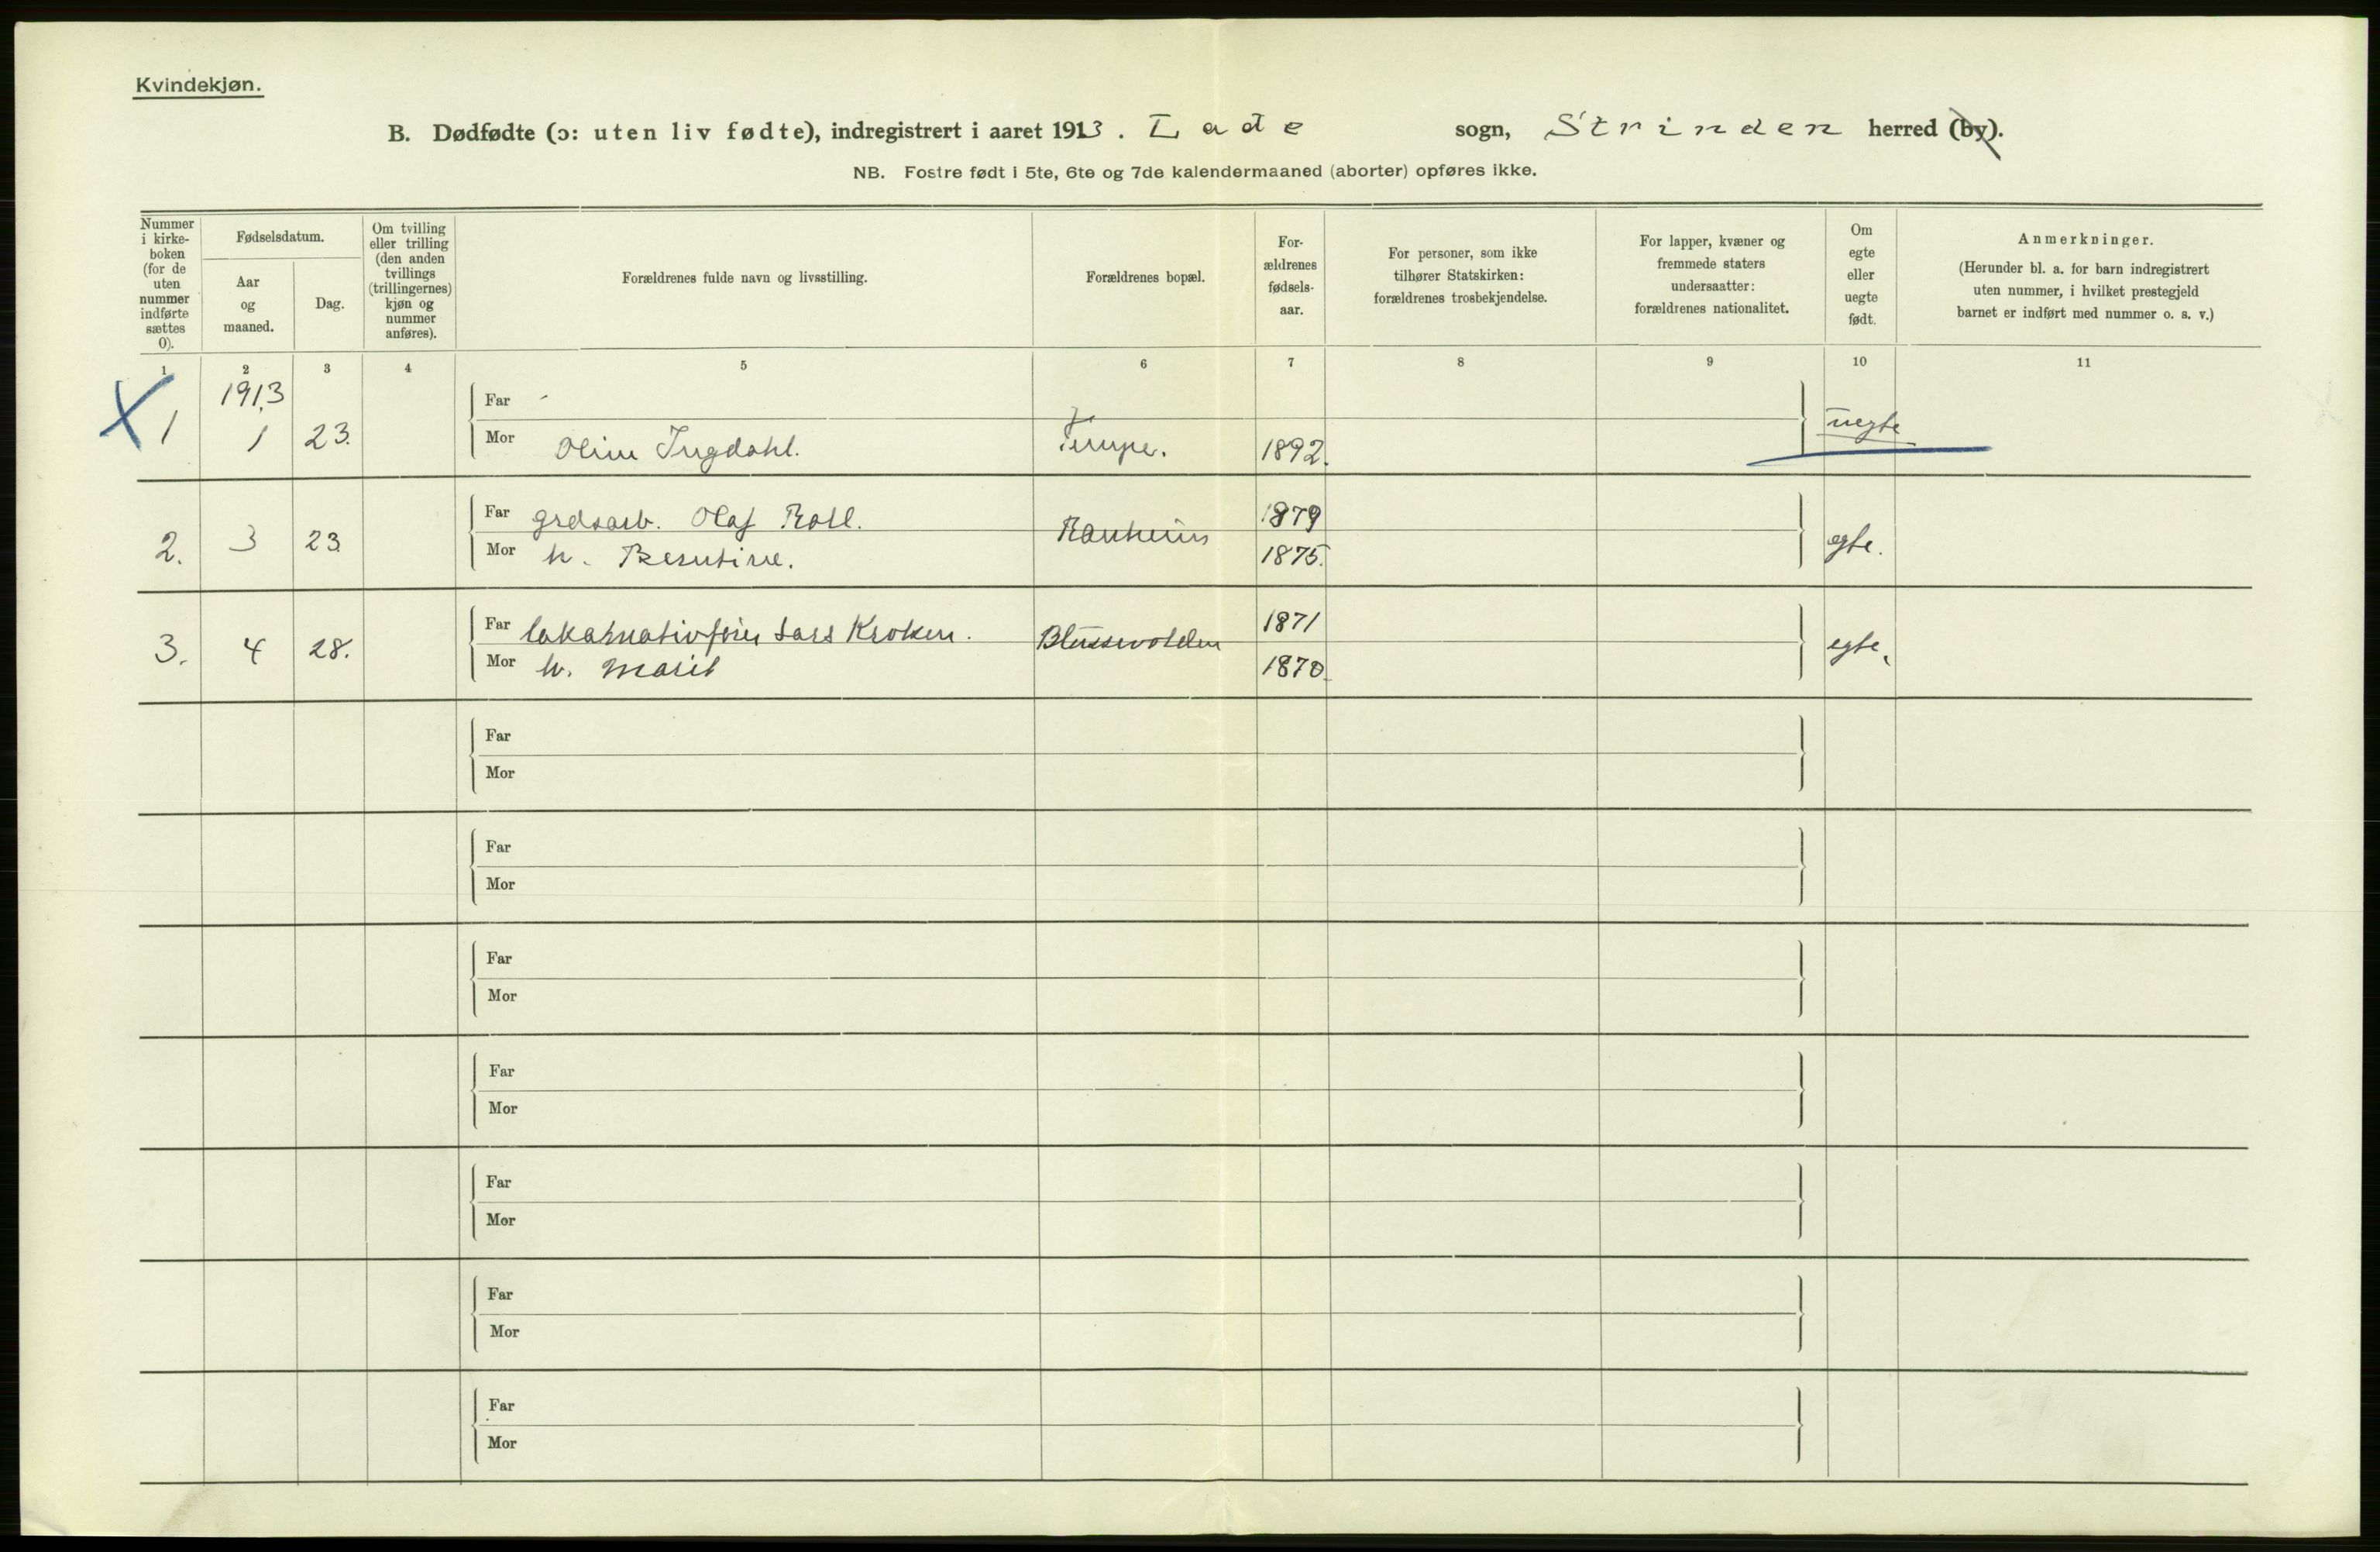 Kvindekjøn.
B. Dødfødte (ɔ: uten liv fødte), indregistrert i aaret 1913. Lade sogn, Strinden herred (by).
NB. Fostre født i 5te, 6te og 7de kalendermaaned (aborter) opføres ikke.
Nummer i kirke-boken (for de uten nummer indførte sættes 0).
Fødselsdatum.
Aar og maaned.
Dag.
Om tvilling eller trilling (den anden tvillings (trillingernes) kjøn og nummer anføres).
Forældrenes fulde navn og livsstilling.
Forældrenes bopæl.
For-ældrenes fødsels-aar.
For personer, som ikke tilhører Statskirken: forældrenes trosbekjendelse.
For lapper, kvæner og fremmede staters undersaatter: forældrenes nationalitet.
Om egte eller uegte født.
Anmerkninger.
(Herunder bl. a. for barn indregistrert uten nummer, i hvilket prestegjeld barnet er indført med nummer o. s. v.)
1 2 3 4 5 6 7 8 9 10 11
1913
Far -
1 1 23. Mor Oline Ingdahl. Tempe. 1892. uegte
Far grdsarb. Olaf Roll. 1879
2. 3 23. Ranheim egte.
Mor h. Berntine. 1875.
Far lokomotivfyrer Lars Kroken. 1871
3. 4 28. Blussevolden egte.
Mor h. Marit 1870.
Far
Mor
Far
Mor
Far
Mor
Far
Mor
Far
Mor
Far
Mor
Far
Mor